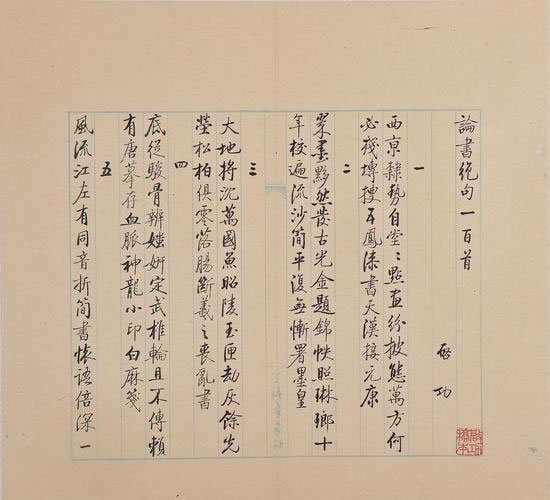 論書絕句一百首
啓功
一
西京隸勢自堂〻點畫紛披態萬方何
必殘塼搜五鳳漆書天漢接元康
二
翠墨黟然發古光金題錦帙照琳瑯十
年校遍流沙簡平復無慚署墨皇
三
大地將沈萬國魚昭陵玉匣劫灰餘先
塋松柏俱零落腸斷羲之喪亂書
四
底從駿骨辨媸妍定武椎輪且不傳賴
有唐摹存血脈神龍小印白麻箋
五
風流江左有同音折簡書懷語倍深一